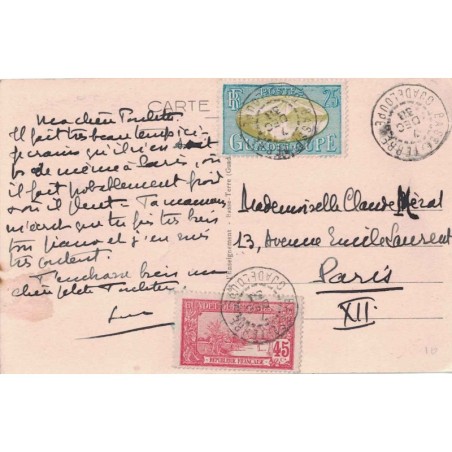 CARTE
Ma chère
Il fait très beau temps ici
je crains qu'il n'en soit
pas de même à Paris, où
il fait probablement froid
où il pleut. Ta maman
m'écrit que tu fais très bien
ton piano et j'en suis
très content.
bien ma
chère petite
POSTES
RF
25
GUADELOUPE
BASSE-TERRE
GUADELOUPE
7 DEC
38
Enseignement - Basse-Terre
Mademoiselle Claude Mérat
13, Avenue Emile Laurent
Paris
XII
GUADELOUPE
REPUBLIQUE FRANÇAISE
45